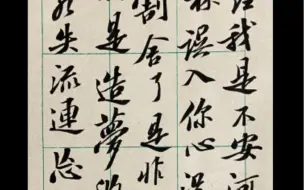 我是不安河
誤入你心
割舍了是非
是造夢
失流連忘